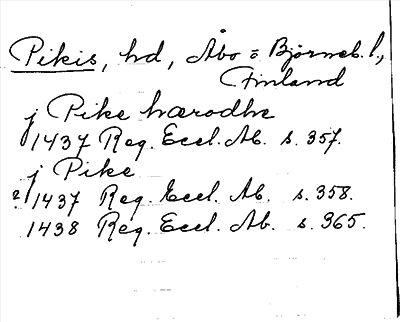 Pikis, hd, Åbo o Björneb. l,
Finland
j Pike hærodhe
1437 Reg. Eccl. Ab. s. 357.
j Pike
?/1437 Reg. Eccl. Ab. s. 358.
1438 Reg. Eccl. Ab. s. 365.